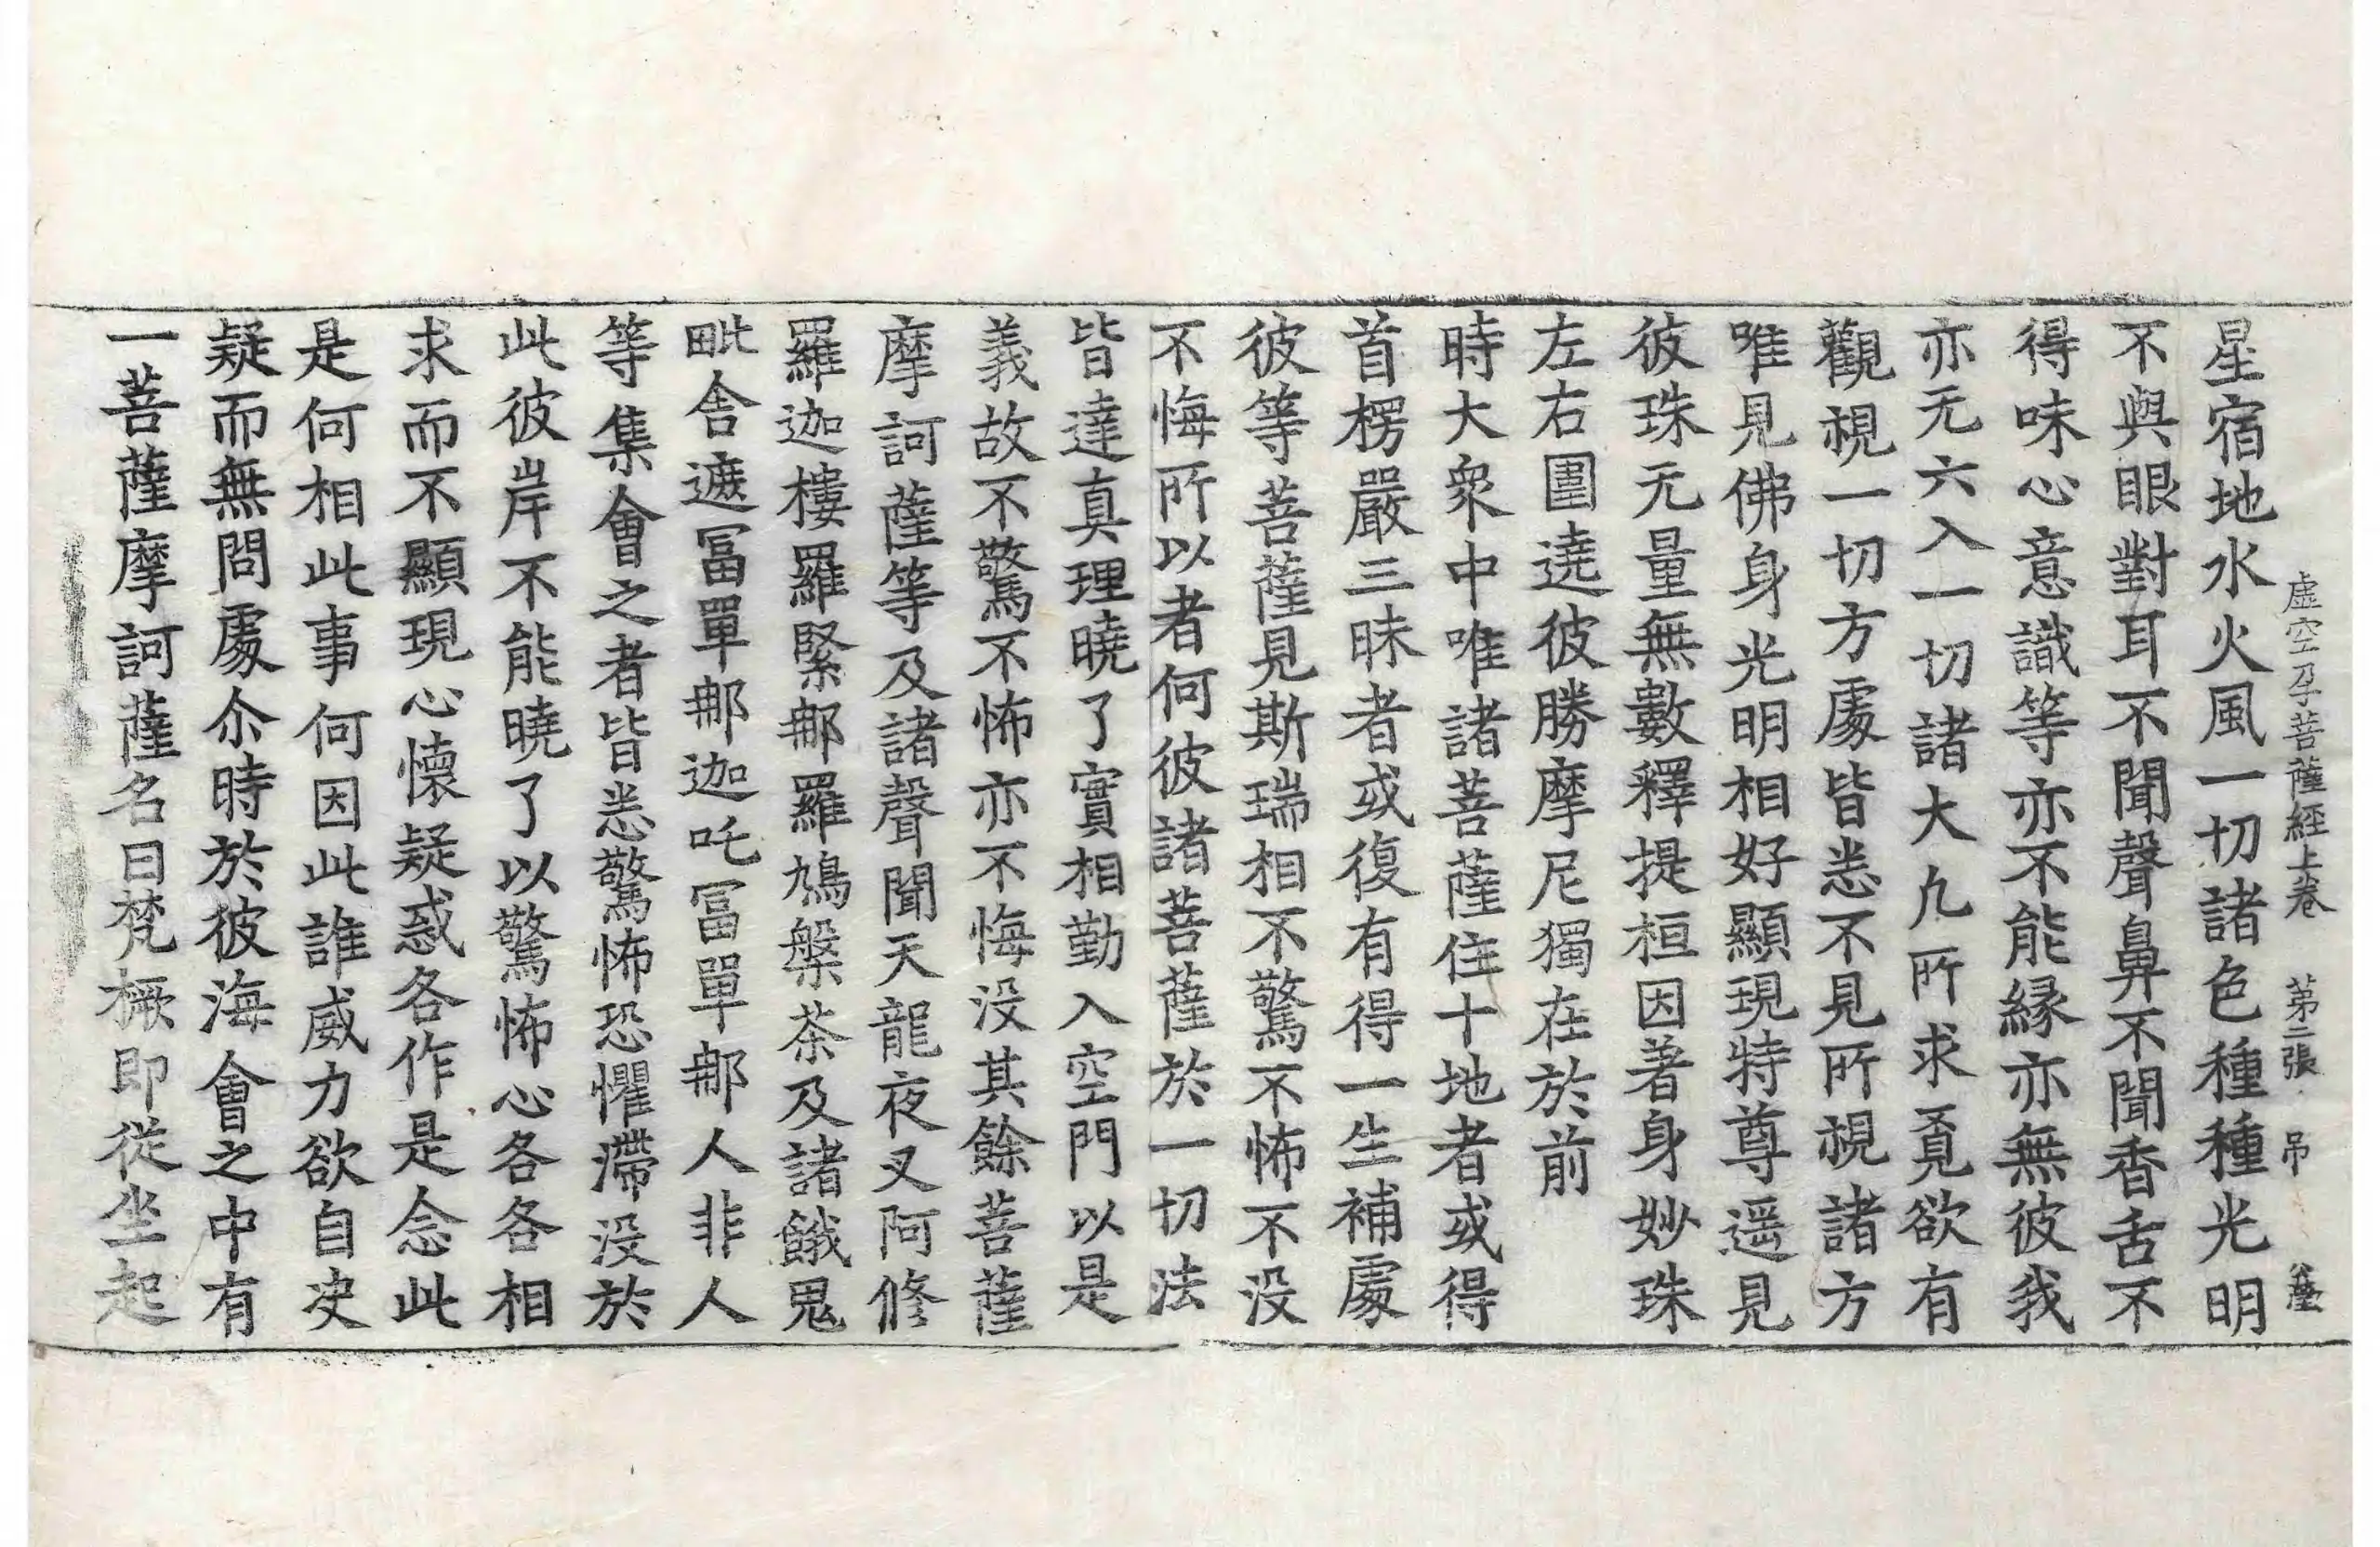 虛空孕菩薩經上卷　第二張　吊
星宿地水火風一切諸色種種光明
不與眼對耳不聞聲鼻不聞香舌不
得味心意識等亦不能緣亦無彼我
亦无六入一切諸大九所求覓欲有
觀視一切方處皆悉不見所視諸方
唯見佛身光明相好顯現特尊遥見
彼珠无量無數釋提桓因著身妙珠
左右圍遶彼勝摩尼獨在於前
時大衆中唯諸菩薩住十地者或得
首楞嚴三昧者或復有得一生補處
彼等菩薩見斯瑞相不驚不怖不没
不悔所以者何彼諸菩薩於一切法
皆達真理曉了實相勤入空門以是
義故不驚不怖亦不悔没其餘菩薩
摩訶薩等及諸聲聞天龍夜叉阿修
羅迦樓羅緊那羅鳩槃茶及諸餓鬼
毗舍遮冨單那迦吒冨單那人非人
等集會之者皆悉驚怖恐懼滯没於
此彼岸不能曉了以驚怖心各各相
求而不顯現心懷疑惑各作是念此
是何相此事何因此誰威力欲自决
疑而無問處尒時於彼海會之中有
一菩薩摩訶薩名曰梵橛即從坐起